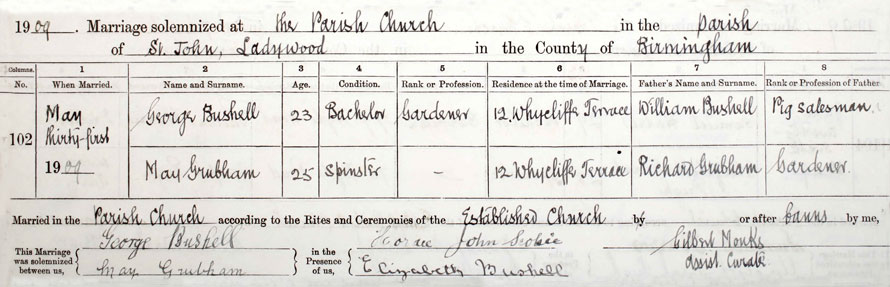 1909. Marriage solemnized at the Parish Church in the Parish
of St. John, Ladywood in the County of Birmingham
Columns. 1 2 3 4 5 6 7 8
No. When Married. Name and Surname. Age. Condition. Rank or Profession. Residence at the time of Marriage. Father's Name and Surname. Rank or Profession of Father
102 May thirty-first 1909 George Bushell 23 Bachelor Gardener 12 Whycliffe Terrace William Bushell Pig Salesman.
May Grubham 25 Spinster – 12 Whycliffe Terrace Richard Grubham Gardener.
Married in the Parish Church according to the Rites and Ceremonies of the Established Church by or after banns by me,
This Marriage was solemnized between us, George Bushell in the Presence of us, Horace John Gilbert Monks
May Grubham Elizabeth Bushell Assist. Curate